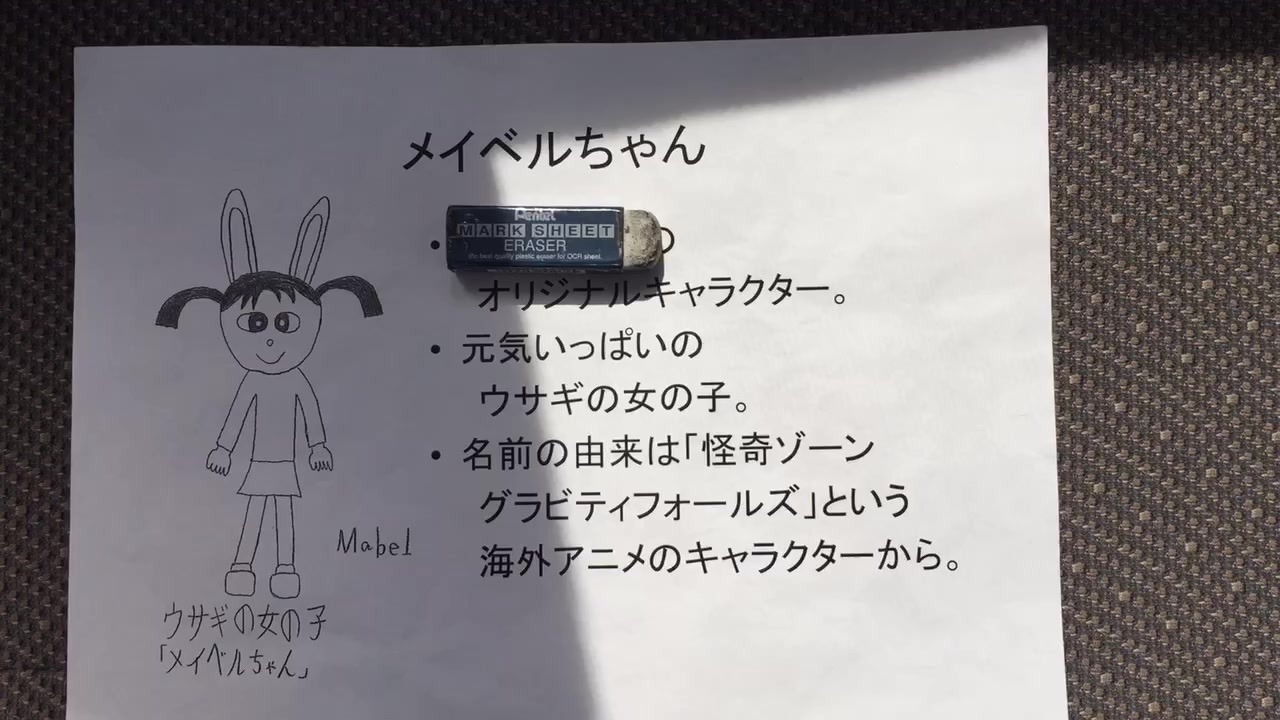 メイベルちゃん
Pentel
MARK SHEET
ERASER
the best quality plastic eraser for OCR sheet.
オリジナルキャラクター。
• 元気いっぱいの
ウサギの女の子。
• 名前の由来は「怪奇ゾーン
グラビティフォールズ」という
海外アニメのキャラクターから。
Mabel
ウサギの女の子
「メイベルちゃん」